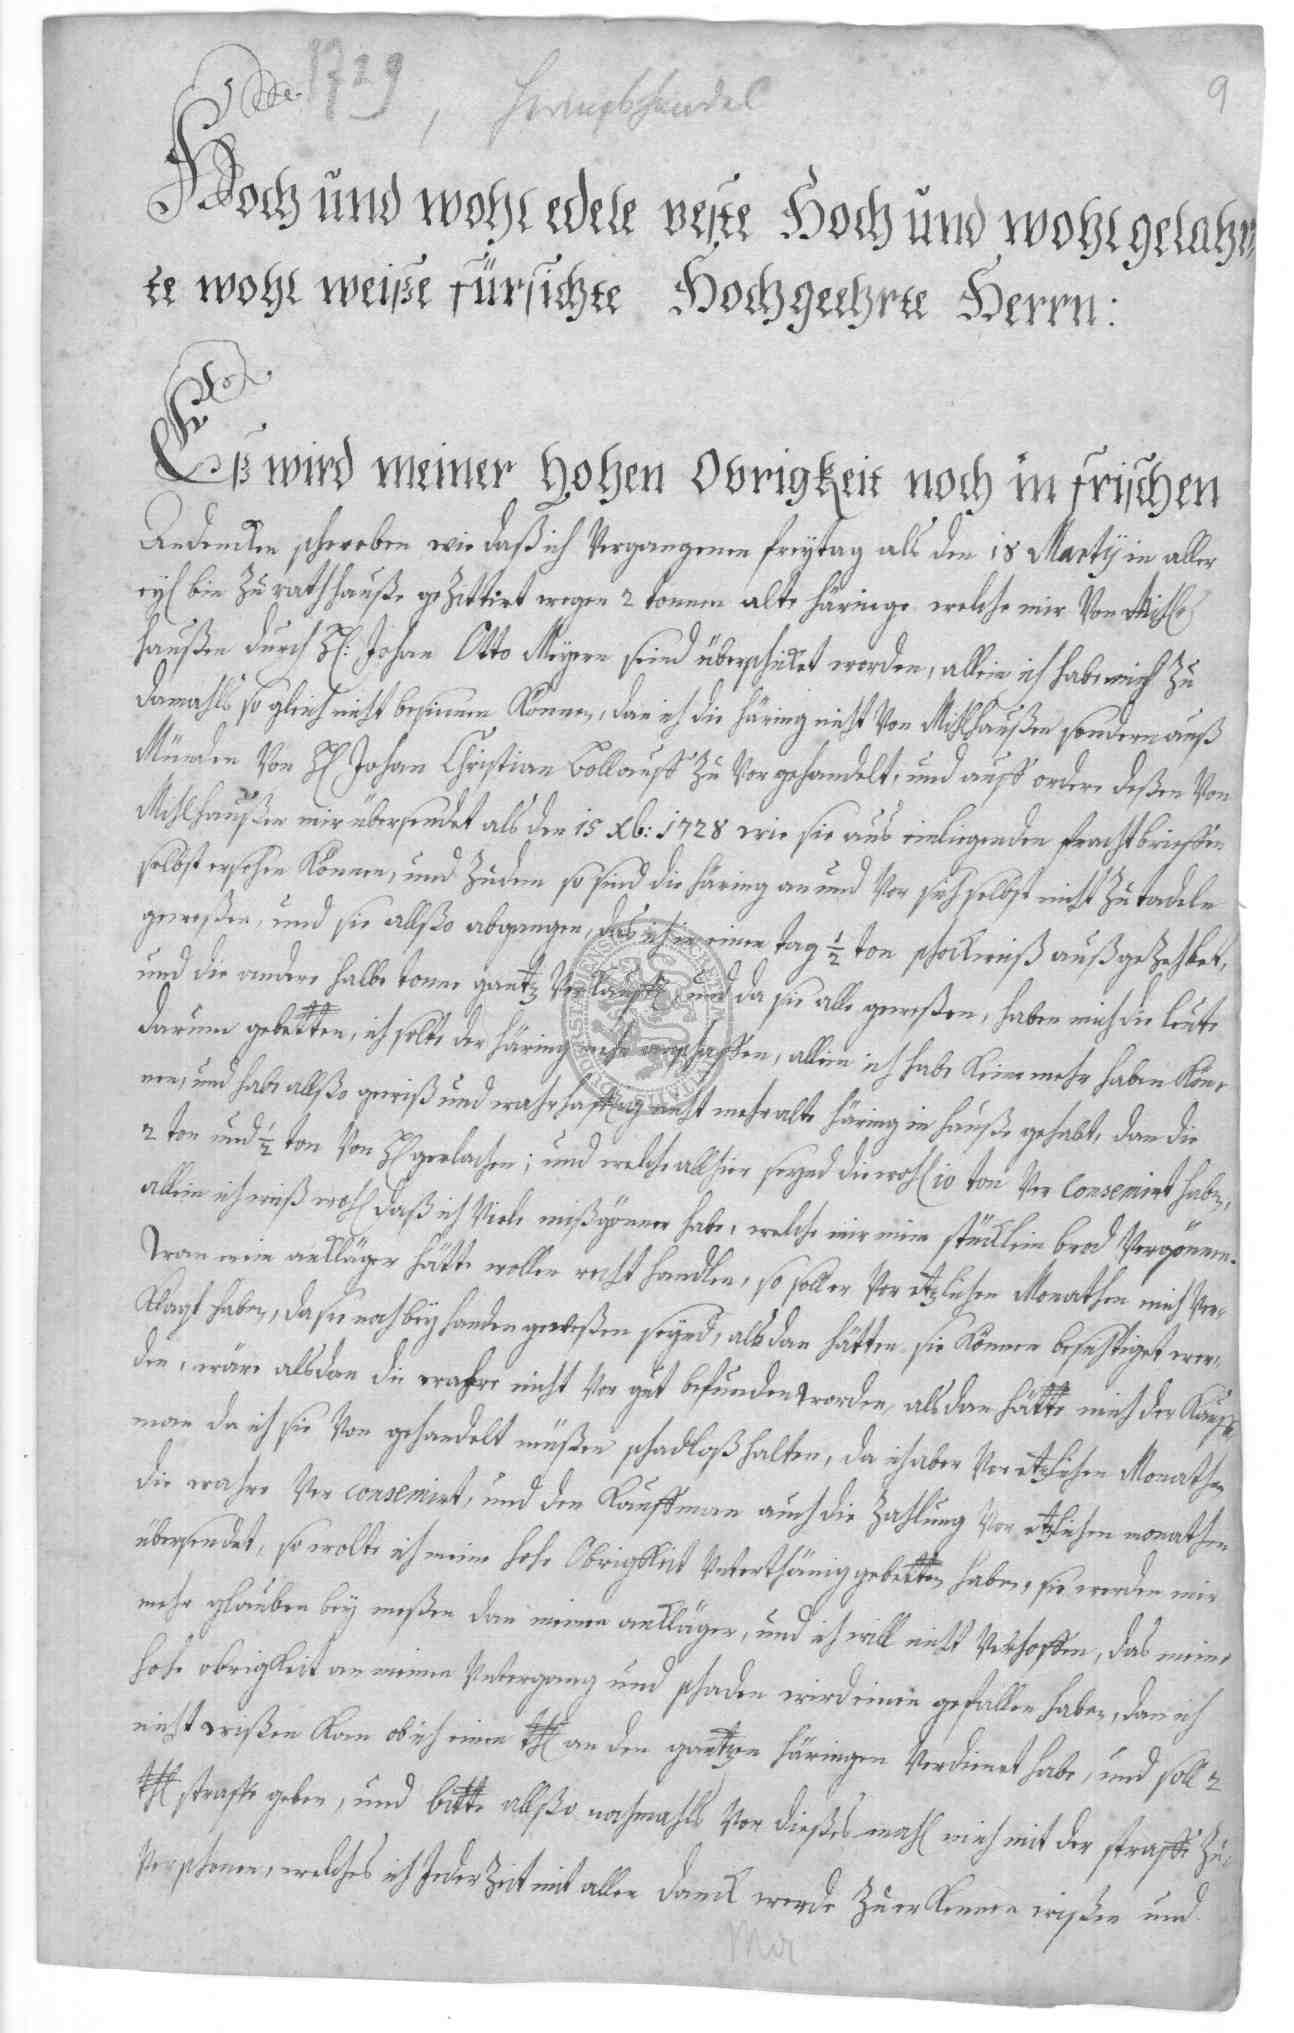 1729, Heringshandel
9
Hoch und wohl edele veste Hoch und wohl gelahr⸗
te wohl weiße fürsichte Hochgeehrte Herrn:
Eß wird meiner hohen Obrigkeit noch in frischen
Andencken schweben wie daß ich Vergangenen freÿtag als den 18 Martÿ in aller
eyl bin Zu rathhauße geZittirt wegen 2 tonnen alte häringe welche mir Von Mühl
haußen durch H: Johan Otto Meÿern seind überschicket worden, allein ich habe mich Zu
damahls so gleich nicht besinnen Können, dan ich die häring nicht Von Mihlhaußen sondern auß
Münden Von H Johan Christian Bollauff Zu Vor gehandelt, und auff ordere deßen Von
Mihlhaußen mir übersendet als den 15 Xb: 1728 wie sie aus einliegenden frachtbrieffen
selbst ersehen Können, und Zudem so sind die häring an und Vor sich selbst nicht Zu tadeln
geweßen, und sie allßo abgangen, das ich in einen tag ½ ton schockweiß außgeZehlet,
und die andere halbe tonne gantz Verkaufft, und da sie alle geweßen, haben mich die leute
darumm gebetten, ich solte der häring mehr anschaffen, allein ich habe Keine mehr haben Kön⸗
nen, und habe allßo gewiß und wahrhafftig nicht mehr alte häring in hauße gehabt, dan die
2 ton und ½ ton Von H gerlachen; und welche allhier seynd die wohl 10 ton Ver consemirt haben,
allein ich weiß wohl daß ich Viele mißgönner habe, welche mir mein stücklein brod Vergönnen.
Wan mein ankläger hätte wollen recht handlen, so soll er Vor etzlichen Monathen mich Ver⸗
Klagt haben, da sie noch beÿ handen geweßen seynd, als dan hätten sie Können besichtiget wer⸗
den, wäre alsdan die wahre nicht Vor gut befunden worden, als dan hätte mich der Kauff
man da ich sie Von gehandelt müßen schadloß halten, da ich aber Vor etzlichen Monathen
die wahre Ver consemirt, und den Kauffman auch die Zahlung Vor etzlichen monathen
übersendet, so wolte ich meine hohe Obrigkeit Unterthänig gebetten haben, sie werden mir
mehr glauben beÿ meßen dan meinen ankläger, und ich will nicht Verhoffen, das meine
hohe obrigkeit an meinen Untergang und schaden wird einen gefallen haben, dan ich
nicht wißen Kan ob ich einen thl an den gantzen häringen Verdienet habe, und soll 2
thl straffe geben, und bitte allßo nochmahls Vor dießes mahl mich mit der straffe Zu
Verschonen, welches ich Jeder Zeit mit allen danck werde Zu erkennen wißen und